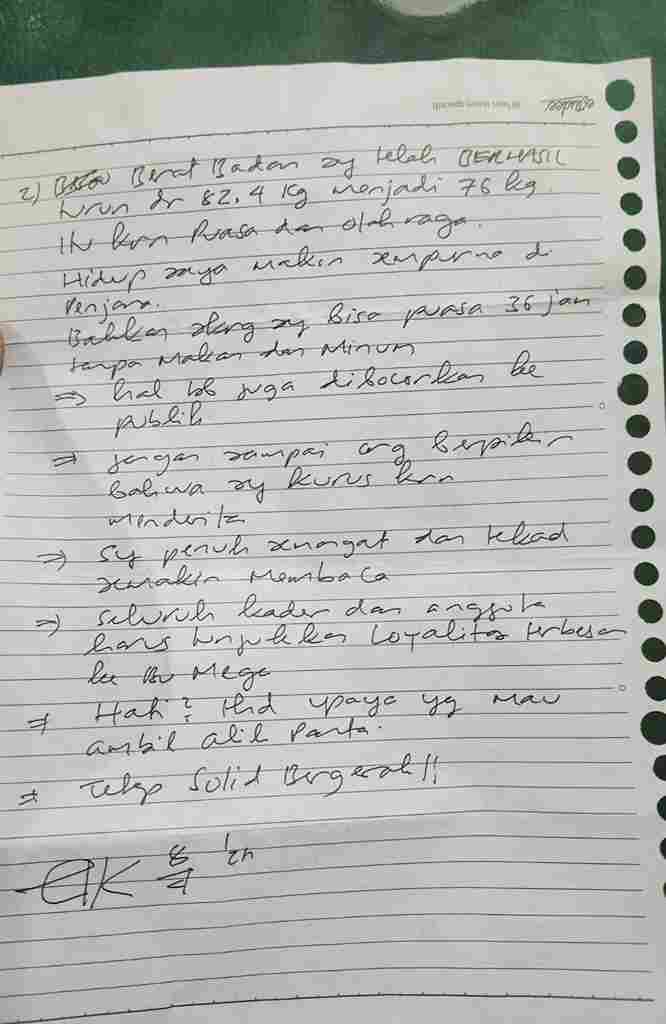 2) Berat Badan sy telah BERHASIL
turun dr 82,4 kg menjadi 76 kg.
Itu krn Puasa dan olah raga.
Hidup saya makin sempurna di
Penjara.
Bahkan skrg sy bisa puasa 36 jam
tanpa Makan dan Minum
⇒ hal tsb juga dibocorkan ke
publik
⇒ jangan sampai org berpikir
bahwa sy kurus krn
menderita
⇒ Sy penuh semangat dan tekad
semakin Membaca
⇒ Seluruh kader dan anggota
harus tunjukkan Loyalitas terbesar
ke Bu Mega
⇒ Hati2 thd upaya yg mau
ambil alih Partai.
⇒ Tetap Solid Bergerak!!